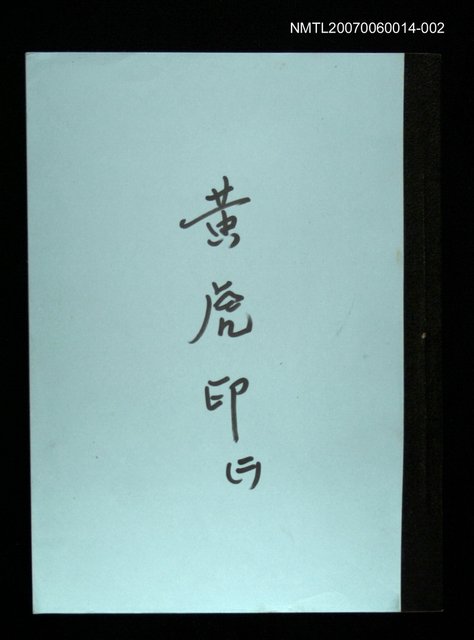 NMTL20070060014-002
黃虎印